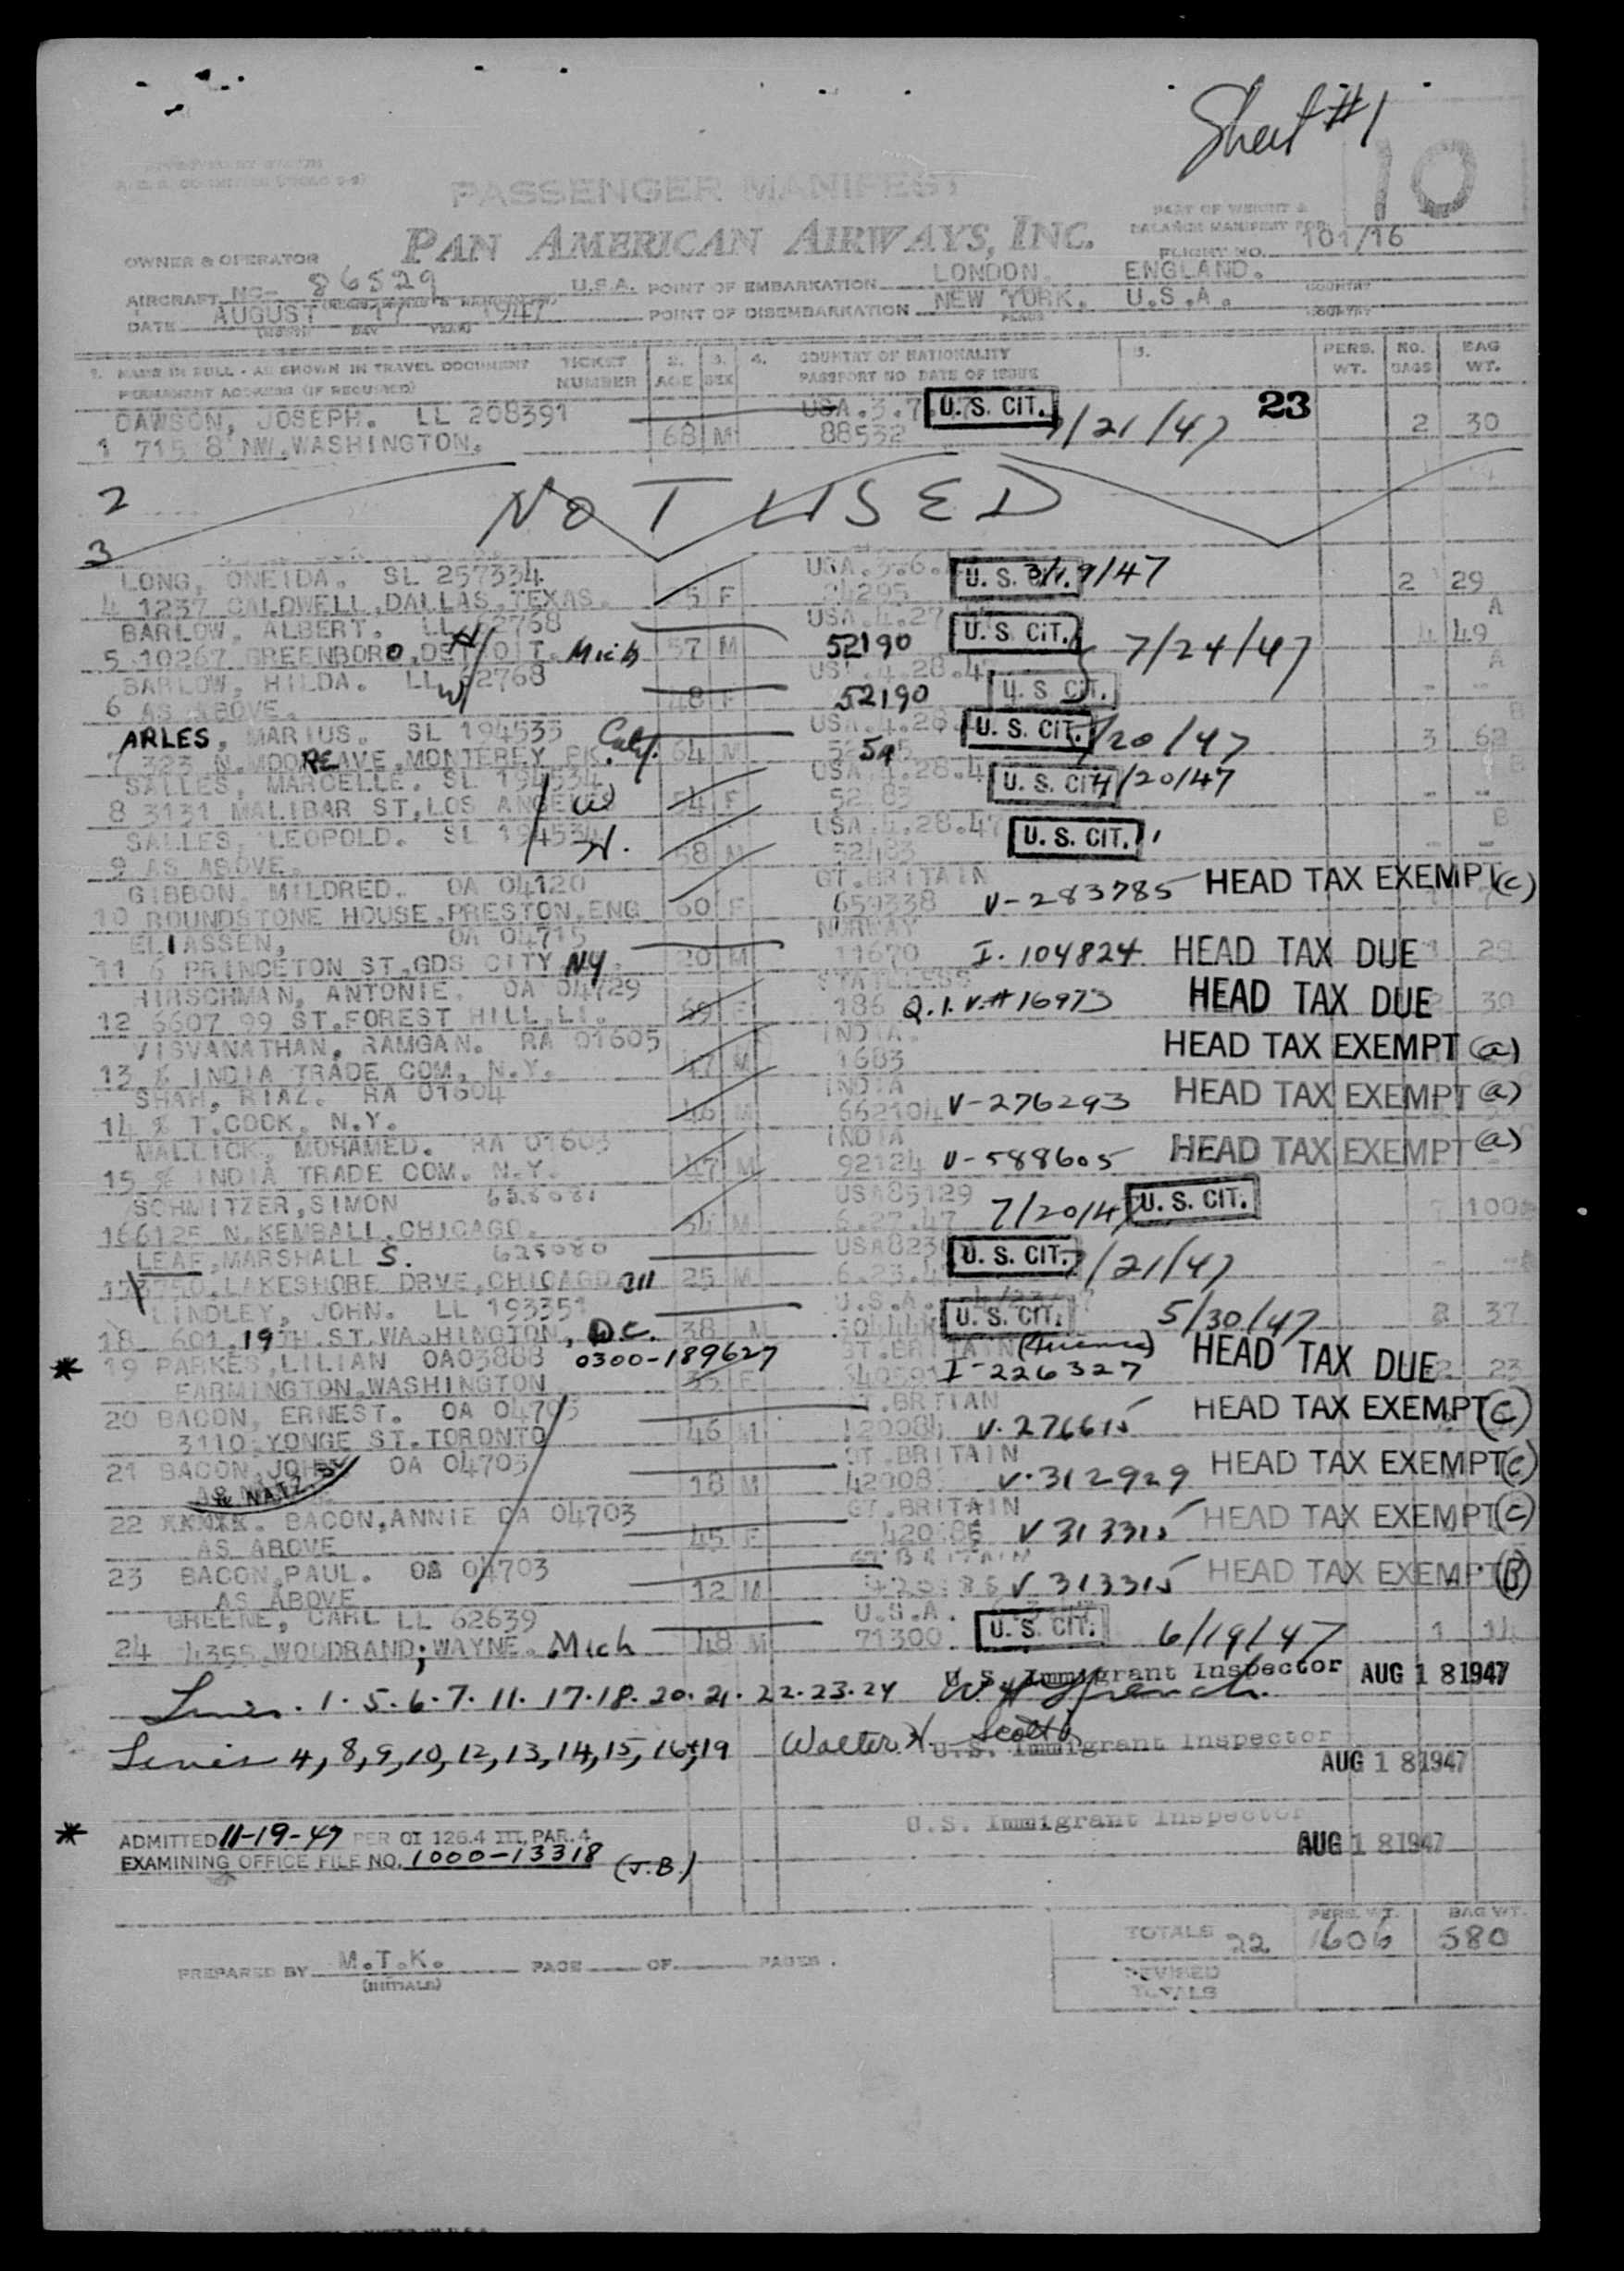 Sheet #1
10
PASSENGER MANIFEST
PAN AMERICAN AIRWAYS, INC.
PART OF WEIGHT &
BALANCE MANIFEST FOR:
FLIGHT NO. 101/16
OWNER & OPERATOR
AIRCRAFT NC- 86529 U.S.A. POINT OF EMBARKATION LONDON. ENGLAND. COUNTRY
DATE AUGUST 17 1947 POINT OF DISEMBARKATION NEW YORK. U.S.A.
1. NAME IN FULL - AS SHOWN IN TRAVEL DOCUMENT TICKET 2. 3. 4. COUNTRY OF NATIONALITY 5. PERS. NO. BAG
PERMANENT ADDRESS (IF REQUIRED) NUMBER AGE SEX PASSPORT NO DATE OF ISSUE WT. BAGS WT.
DAWSON, JOSEPH. LL 208391 USA.3.7.47 U. S. CIT. 23
1 715 8 NW.WASHINGTON. 68 M 88532 7/21/47 2 30
2 NOT USED
3
LONG, ONEIDA. SL 257334 USA. U. S. CIT. 3/19/47
4 1237 CALDWELL,DALLAS,TEXAS. 5 F 24295 2 29
BARLOW, ALBERT. LL 62768 USA.4.27 U. S. CIT. A
5 10267 GREENBORO,DETROIT. Mich 57 M 52190 7/24/47 4 49
BARLOW, HILDA. LL 62768 4.28.47 A
6 AS ABOVE. W 48 F 52190 U. S. CIT. - -
ARLES, MARIUS. SL 194535 Calif. USA.4.28. U. S. CIT. 7/20/47 B
7 323 N.MOORE AVE.MONTEREY PK. 64 M 3 62
SALLES, MARCELLE. SL 194534 USA.4.28.4 U. S. CIT. 7/20/47 B
8 3131 MALIBAR ST,LOS ANGELES W 54 F - -
SALLES, LEOPOLD. SL 194534 USA.4.28.47 U. S. CIT. B
9 AS ABOVE. H. 58 M 52483 - -
GIBBON, MILDRED. OA 04120 GT.BRITAIN HEAD TAX EXEMPT (c)
10 ROUNDSTONE HOUSE.PRESTON.ENG 60 F 659338 V-283785
ELIASSEN, OA 04715 NORWAY
11 6 PRINCETON ST.GDS CITY NY 20 M 11670 I-104824 HEAD TAX DUE 29
HIRSCHMAN, ANTONIE. OA 04729 STATELESS
12 6607 99 ST.FOREST HILL.LI. 69 F 186 Q.I.V.#16973 HEAD TAX DUE 2 30
VISVANATHAN, RAMGAN. RA 01605 INDIA.
13 % INDIA TRADE COM. N.Y. 47 M 1683 HEAD TAX EXEMPT (a)
SHAH, RIAZ. RA 01604 INDIA
14 % T.COOK. N.Y. 46 M 662104 V-276293 HEAD TAX EXEMPT (a)
MALLICK, MOHAMED. RA 01603 INDIA
15 % INDIA TRADE COM. N.Y. 47 M 92124 V-588605 HEAD TAX EXEMPT (a)
SCHMITZER,SIMON USA85129
16 6125 N.KEMBALL.CHICAGO. 54 M 6.27.47 7/20/47 U. S. CIT. 100
LEAF,MARSHALL S. 625080 USA823 U. S. CIT. 7/21/47
17 3750.LAKESHORE DRVE,CHICAGO Ill 25 M 6.23.4
LINDLEY, JOHN. LL 193351 U.S.A. U. S. CIT. 5/30/47 37
18 601.19TH.ST.WASHINGTON, D.C. 38 M
* 19 PARKES,LILIAN OA03888 0300-189627 GT.BRITAIN I-226327 HEAD TAX DUE 2 23
FARMINGTON.WASHINGTON 35 F
20 BACON, ERNEST. OA 04703 GT.BRTIAN HEAD TAX EXEMPT (C)
3110.YONGE ST.TORONTO 46 M V-276615
21 BACON,JOHN OA 04703 GT.BRITAIN HEAD TAX EXEMPT (c)
18 M V-312929
22 BACON,ANNIE OA 04703 GT.BRITAIN HEAD TAX EXEMPT (C)
AS ABOVE 45 F 420186 V 313315
23 BACON,PAUL. OA 04703 GT.BRITAIN HEAD TAX EXEMPT (B)
AS ABOVE 12 M V 313315
GREENE, CARL LL 62639 U.S.A. U. S. CIT.
24 4355 WOODRAND; WAYNE. Mich 48 M 71300 6/19/47 1 14
Lines. 1. 5. 6. 7. 11. 17. 18. 20. 21. 22. 23. 24 U.S. Immigrant Inspector AUG 18 1947
Lines 4, 8, 9, 10, 12, 13, 14, 15, 16 + 19 Walter H. Scott U.S. Immigrant Inspector
AUG 18 1947
U.S. Immigrant Inspector
AUG 18 1947
* ADMITTED 11-19-47 PER OI 126.4 III, PAR. 4
EXAMINING OFFICE FILE NO. 1000-13318 (J.B.)
PERS. WT. BAG WT.
TOTALS 22 1606 580
PREPARED BY M.T.K. PAGE OF PAGES.
(INITIALS)
REVISED
TOTALS